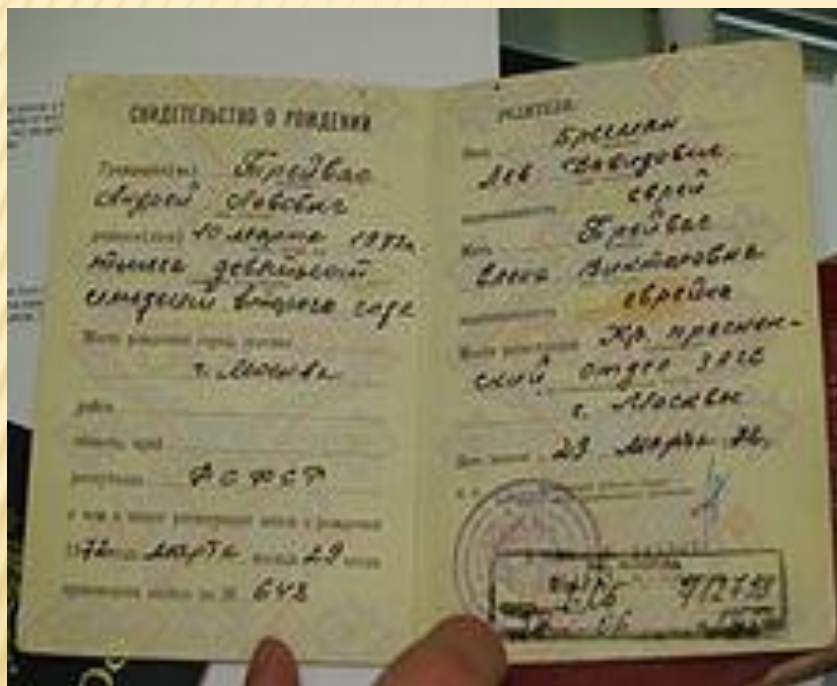 СВИДЕТЕЛЬСТВО О РОЖДЕНИИ
Трейвас
Андрей Львович
10 марта 1972г.
тысяча девятьсот
семьдесят второго года
Место рождения: город, селение
г. Москва
район
область, край
республика РСФСР
о чем в книге регистрации актов о рождении
1972 года марта месяца 29 числа
произведена запись за № 648
РОДИТЕЛИ:
Лев Давидович
еврей
Мать Трейвас
Елена Викторовна
еврейка
Место регистрации Кр. преснен-
ский отдел ЗАГС
г. Москвы
29 марта 72г.